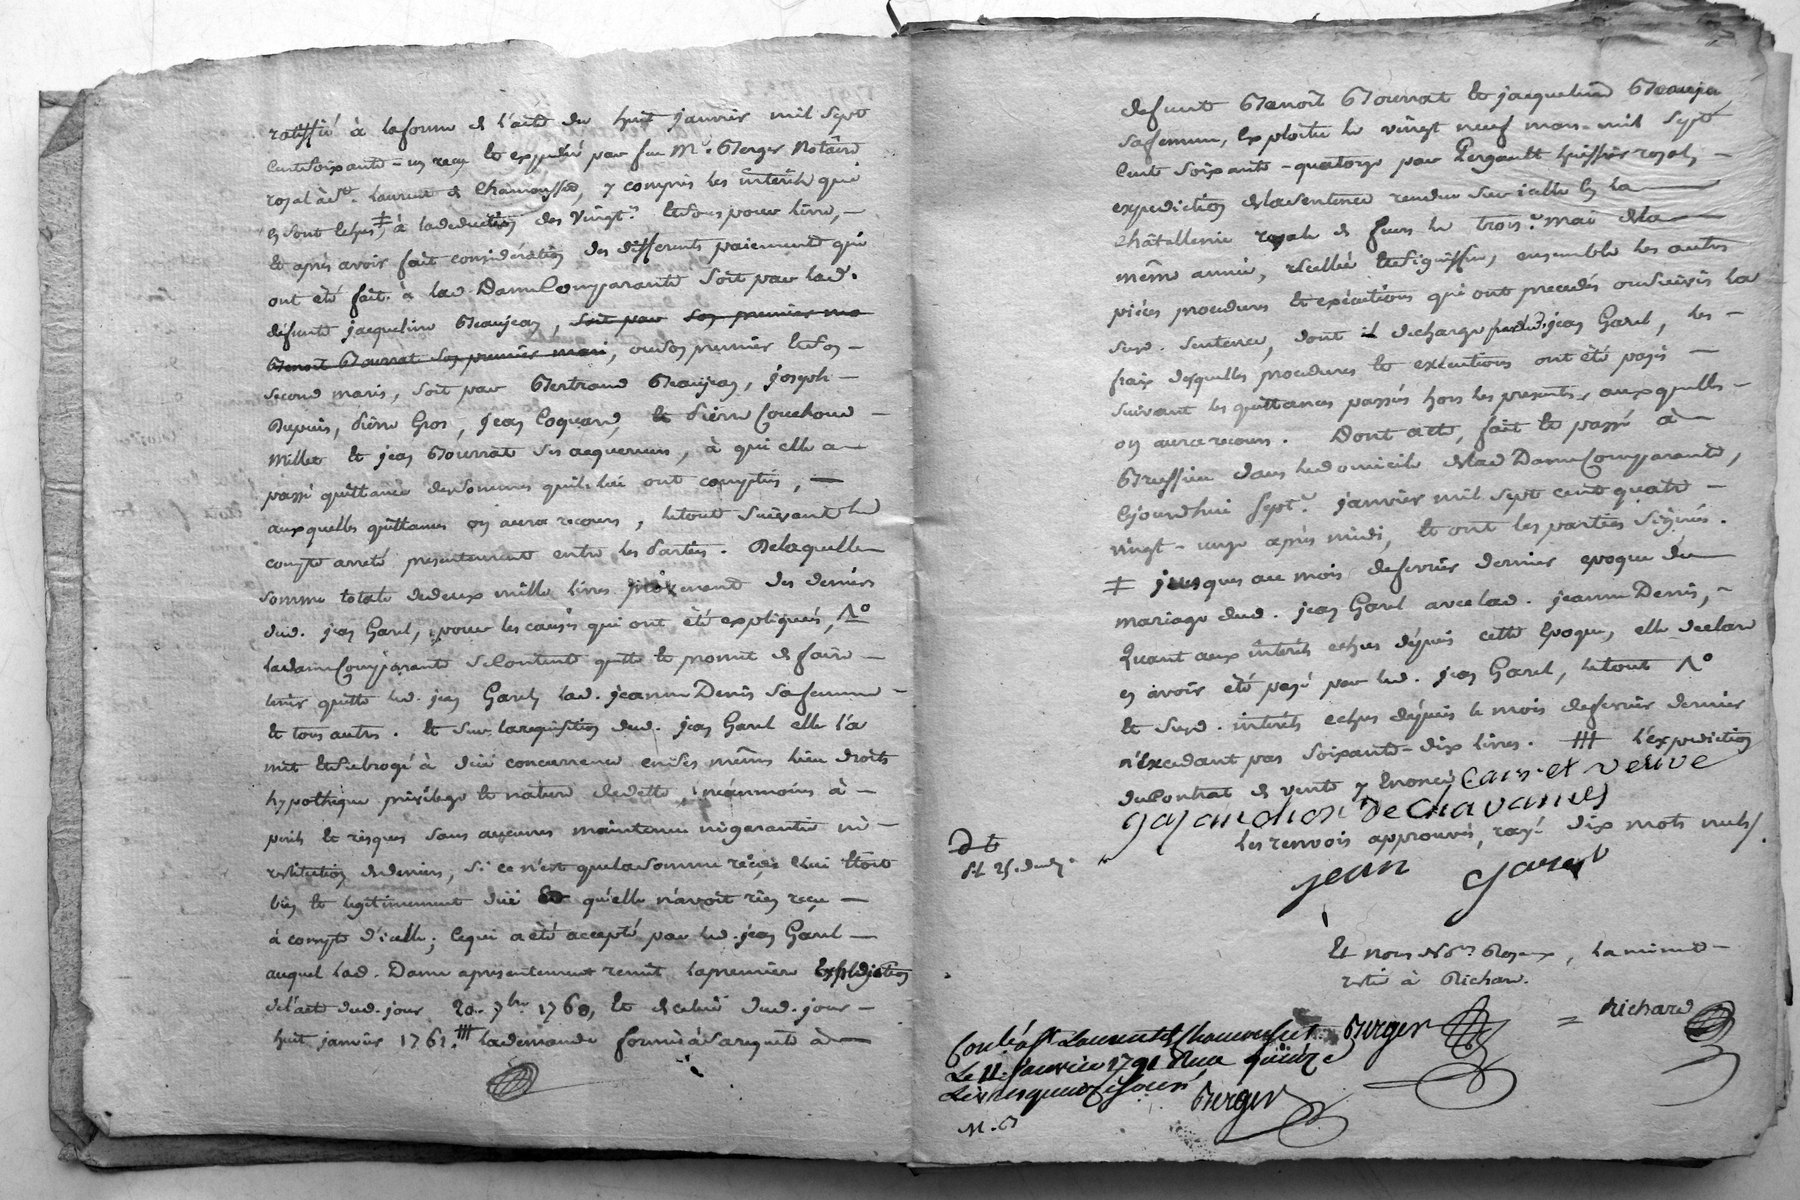 ratiffié à la forme de l'acte du huit janvier mil sept
cent soixante-un reçu et expedié par feu Me. Berger Notaire
royal à St. Laurent de Chamousset, y compris les intérêts qui
en sont echus, ‡ à la deduction des vingt.es et sous pour livre,
et après avoir fait considération des differents paiements qui
ont été fait à lad. Dame Comparante soit par lad.
défunte jacqueline Beaujean, soit par son premier ma
Benoit Bournat son premier mari, ou son premier et son
second maris, soit par Bertrand Beaujean, joseph
Dupuis, pierre Gros, jean Coquard, et pierre Couchoud
Millet et jean Bournat ses acquereurs, à qui elle a
passé quittance des sommes qu'ils lui ont comptés,
auxquelles quittances on aura recours, le tout suivant le
compte arreté presentement entre les parties. De laquelle
somme totale de deux mille livres provenant des deniers
dud. jean Garel, pour les causes qui ont été expliquées,
lad. dame Comparante se contente quitte et promet de faire
tenir quitte led. jean Garel, lad. jeanne Denis sa femme
et tous autres. Et sur la requisition dud. jean Garel elle l'a
mit et subrogé à due concurrence en ses mêmes lieu droits
hypothèque privilege et nature de dette, néanmoins à
perils et risques sans aucunes maintenue ni garantie ni
restitution de deniers, si ce n'est que la somme reçue lui etoit
bien et legitimement due et qu'elle n'avoit rien reçu
à compte d'icelle; ce qui a été accepté par led. jean Garel
auquel lad. Dame a presentement remit la premiere Expedition
de l'acte dud. jour 20. 7bre 1760, et de celui dud. jour
huit janvier 1761. ‡‡ la demande formée à sa requete à
defunt Benoît Bournat et jacqueline Beaujean
sa femme, exploitée le vingt neuf mars mil sept
cent soixante-quatorze par Pergault huissier royal,
expedition de la sentence rendue sur icelle en la
châtellenie royale de feurs le trois.e mai de la
même année, scellée et signiffiée, ensemble les autres
pièces procedures et exécutions qui ont precedés ou suivis la
susd. sentence, dont il decharge led. jean Garel, les
frais desquelles procedures et exécutions ont été payés
suivant les quittances passées hors les presentes, auxquelles
on aura recours. Dont acte, fait et passé à
Brussieu dans le domicile de lad. Dame Comparante,
cejourdhui sept.e janvier mil sept cent quatre
vingt-onze après midi, et ont les parties signés.
‡ jusques au mois de fevrier dernier epoque du
mariage dud. jean Garel avec lad. jeanne Denis,
Quant aux intérêts echus depuis cette Epoque, elle declare
en avoir été payé par led. jean Garel, le tout
et susd. intérêts echus depuis le mois de fevrier dernier
n'éxcedant pas soixante-dix livres. ‡‡ l'expedition
du Contrat de vente y enoncé
veuve
De Chavannes
Les renvois approuvés, rayé dix mots nuls.
jean Garel
Et nous Nores Royaux, la minute
resté à Richard.
Berger = Richard
Conle a St Laurent de Chamousset
Le 11. Janvier 1791 Reçu quinze
Livres
Berger